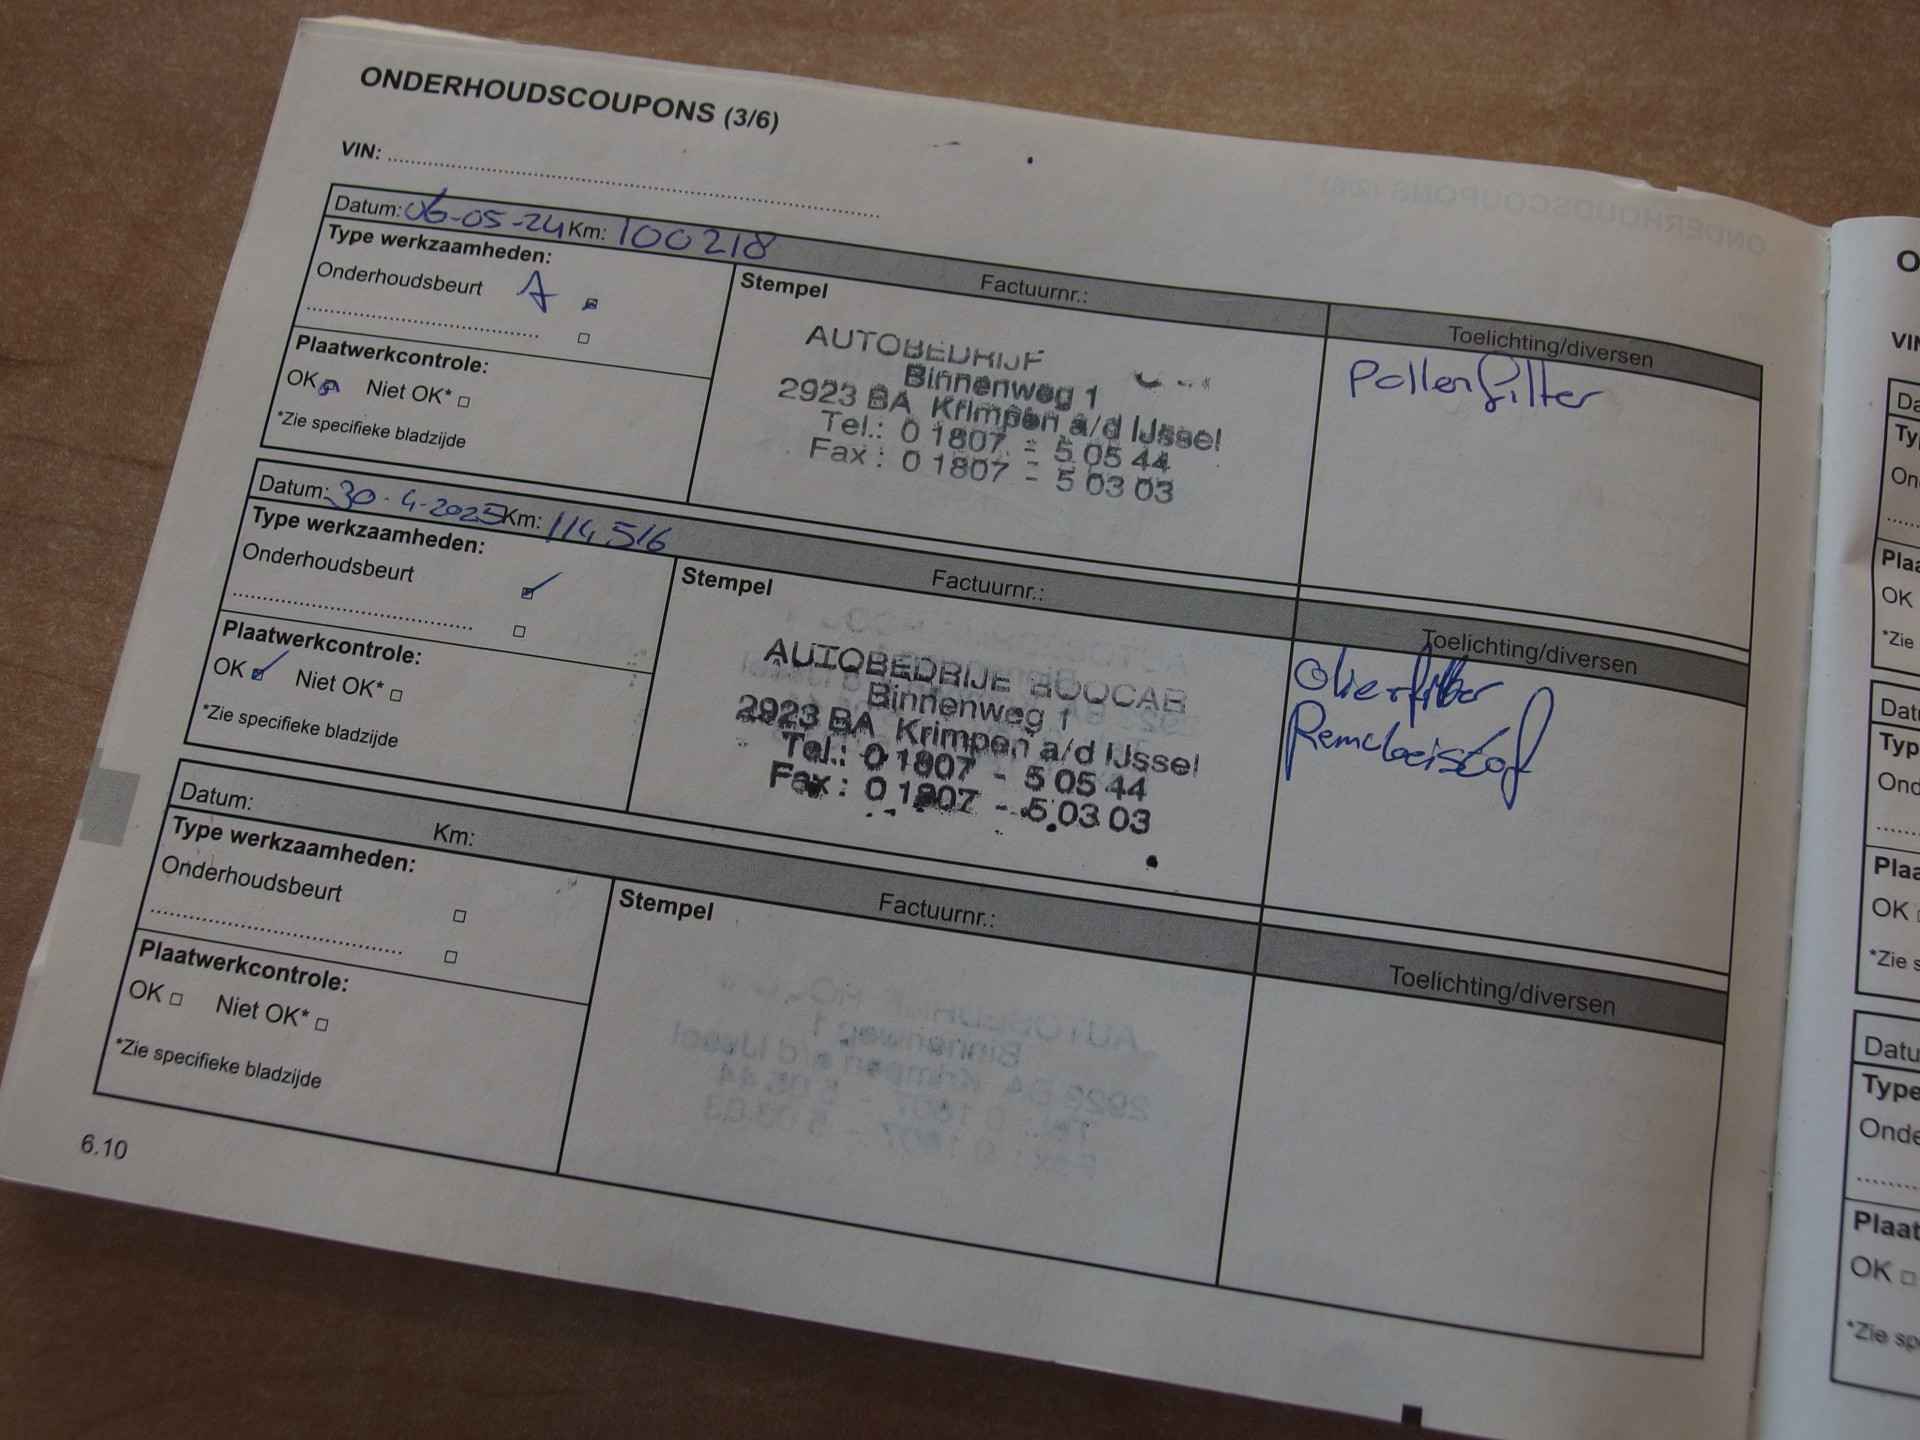 ONDERHOUDSCOUPONS (3/6)
VIN:
Datum: 06-05-24 Km: 100218
Factuurnr.:
Toelichting/diversen
Type werkzaamheden:
Onderhoudsbeurt A
Plaatwerkcontrole:
OK Niet OK*
*Zie specifieke bladzijde
Stempel
AUTOBEDRIJF
Binnenweg 1
2923 BA Krimpen a/d IJssel
Tel.: 0 1807 - 5 05 44
Fax : 0 1807 - 5 03 03
Pollenfilter
Datum: 30-4-2025 Km: 114516
Factuurnr.:
Toelichting/diversen
Type werkzaamheden:
Onderhoudsbeurt
Plaatwerkcontrole:
OK Niet OK*
*Zie specifieke bladzijde
Stempel
AUTOBEDRIJF
Binnenweg 1
2923 BA Krimpen a/d IJssel
Tel.: 0 1807 - 5 05 44
Fax : 0 1807 - 5 03 03
Datum:
Km:
Factuurnr.:
Toelichting/diversen
Type werkzaamheden:
Onderhoudsbeurt
Plaatwerkcontrole:
OK Niet OK*
*Zie specifieke bladzijde
Stempel
6.10